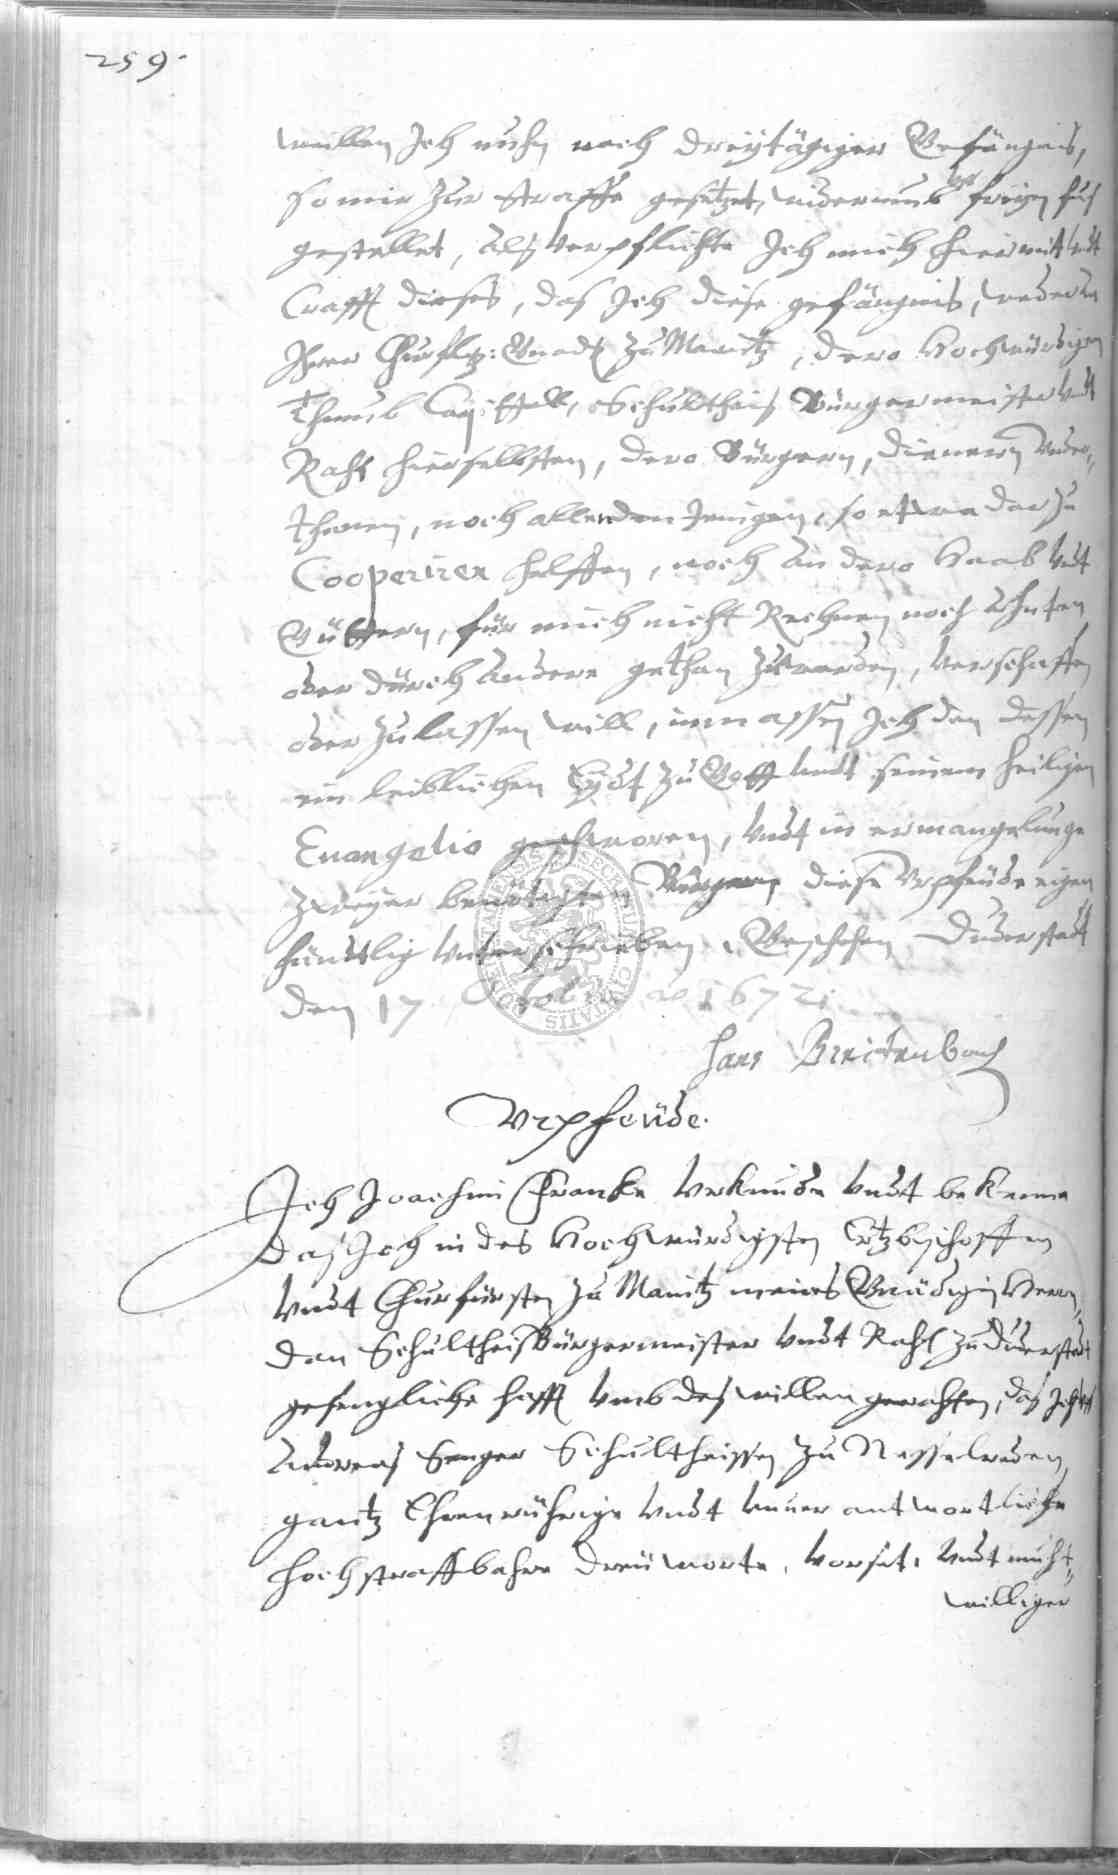 259.
willen Ich nuhn nach dreytägiger Gefängnis,
so mir zur Straffe gesetzet, widerumb vf freyen fus
gestellet, Als verpflichte Ich mich hiermit vndt
Crafft dieses, das Ich diese gefängnis, weder an
Ihrer Churfl: Gnad zu Maintz, dero Hochwürdigen
Thumb Capittell, Schultheis Bürgermeister vndt
Raht hierselbsten, dero Bürgern, Dienern vnder=
thanen, noch allen den Jenigen, so etwa darzu
Cooperiren helffen, noch an dero Haab vndt
Güttern, für mich nicht Rechnen noch ahnten
oder durch andere gethan zu werden, verschaffen
oder zulassen will, inmassen Ich den dessen
ein leiblichen Eydt zu Gott vndt seinem heiligen
Euangelio geschworen, vndt in ermangelunge
zweyer benötigten Bürgen diese Vrpheüde eigen
händtlig vnterschrieben. Geschehen Duderstadt
den 17 Octobris ao 1672.
Hans Breitenbach
Vrpheüde.
Ich Joachim Francke vrkunde vndt bekenne
das Ich in des Hochwürdigsten Ertzbischoffen
vndt Churfürsten zu Maintz meines Gnädigen Herrn,
den Schultheis Bürgermeister vndt Raht zu Duderstadt
gefengliche hafft vmb des willen gerahten, das Ich
Andreas Senger Schultheissen zu Nesselreden
gantz Ehrenrührige vndt vnuerantwortliche
hochstraffbahre dreuworte, vorsetz vndt muht=
williger